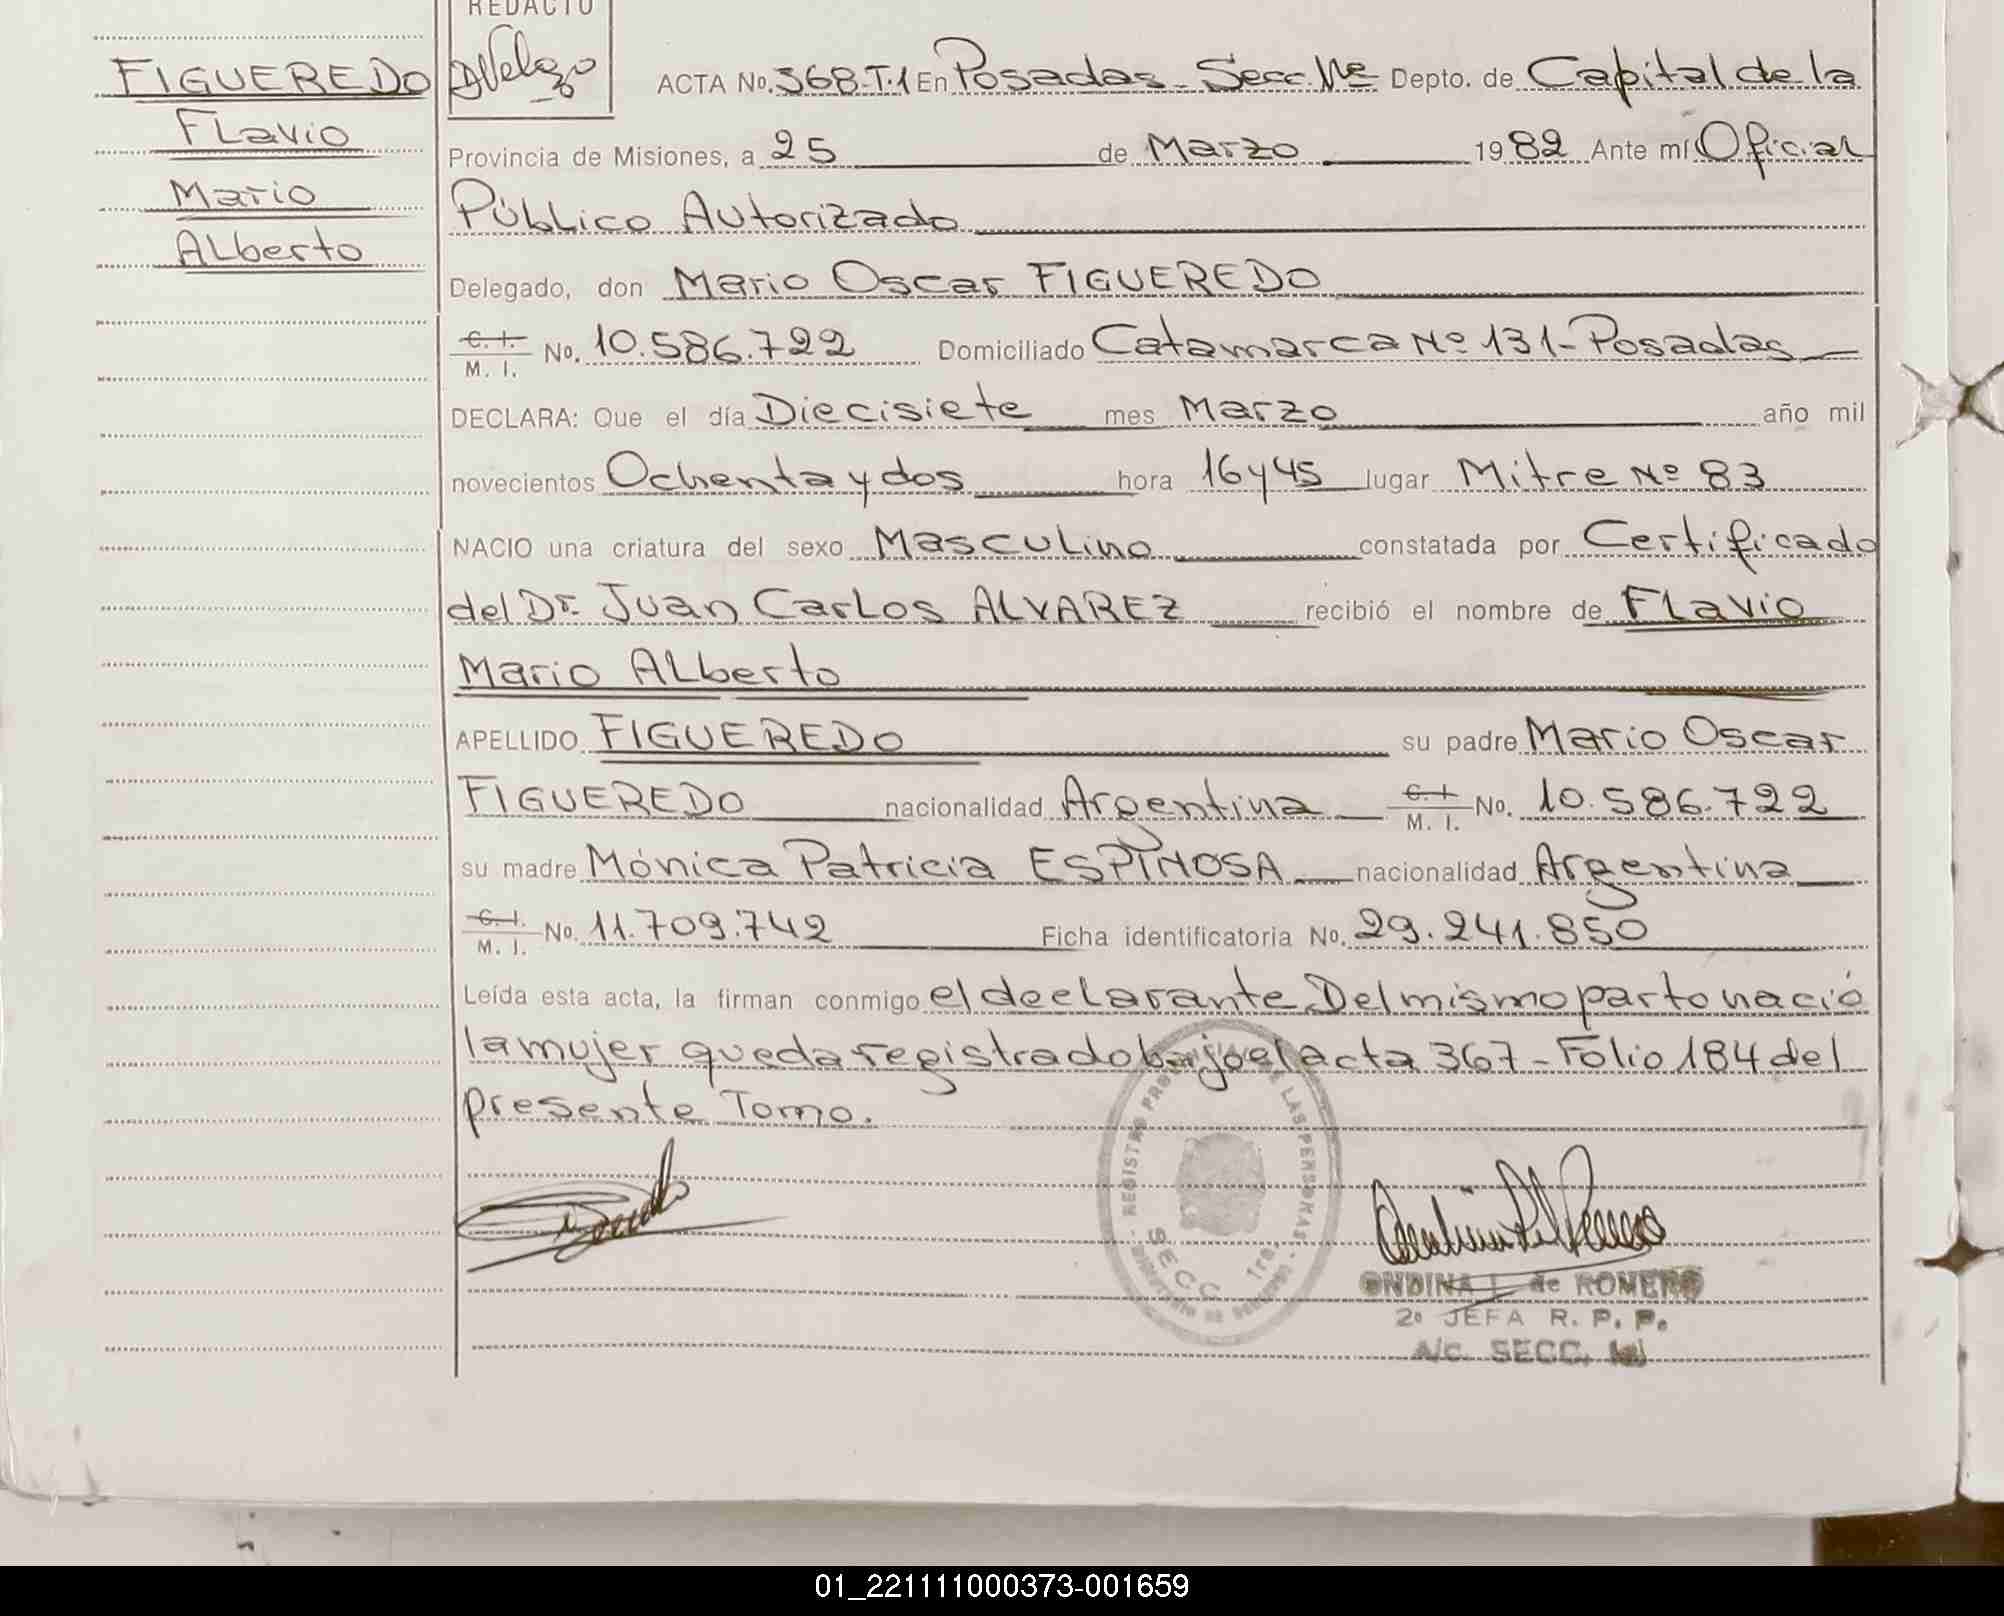 REDACTO
DVelazo
FIGUEREDO
Flavio
Mario
Alberto
ACTA No. 368-T.1 En Posadas - Secc. 1ra Depto. de Capital de la
Provincia de Misiones, a 25 de Marzo 1982 Ante mí Oficial
Público Autorizado
Delegado, don Mario Oscar FIGUEREDO
C. I.
M. I. No. 10.586.722 Domiciliado Catamarca Nº 131 - Posadas
DECLARA: Que el día Diecisiete mes Marzo año mil
novecientos Ochenta y dos hora 16 y 45 lugar Mitre Nº 83
NACIO una criatura del sexo Masculino constatada por Certificado
del Dr. Juan Carlos ALVAREZ recibió el nombre de Flavio
Mario Alberto
APELLIDO FIGUEREDO su padre Mario Oscar
FIGUEREDO nacionalidad Argentina C. I. M. I. No. 10.586.722
su madre Mónica Patricia ESPINOSA nacionalidad Argentina
C. I.
M. I. No. 11.709.742 Ficha identificatoria No. 29.241.850
Leída esta acta, la firman conmigo el declarante. Del mismo parto nació
la mujer queda registrado bajo el acta 367 - Folio 184 del
presente Tomo.
REGISTRO PROVINCIAL DE LAS PERSONAS
SECC. 1ra.
ONDINA I. de ROMERO
2º JEFA R. P. P.
A/c. SECC. 1a
01_221111000373-001659